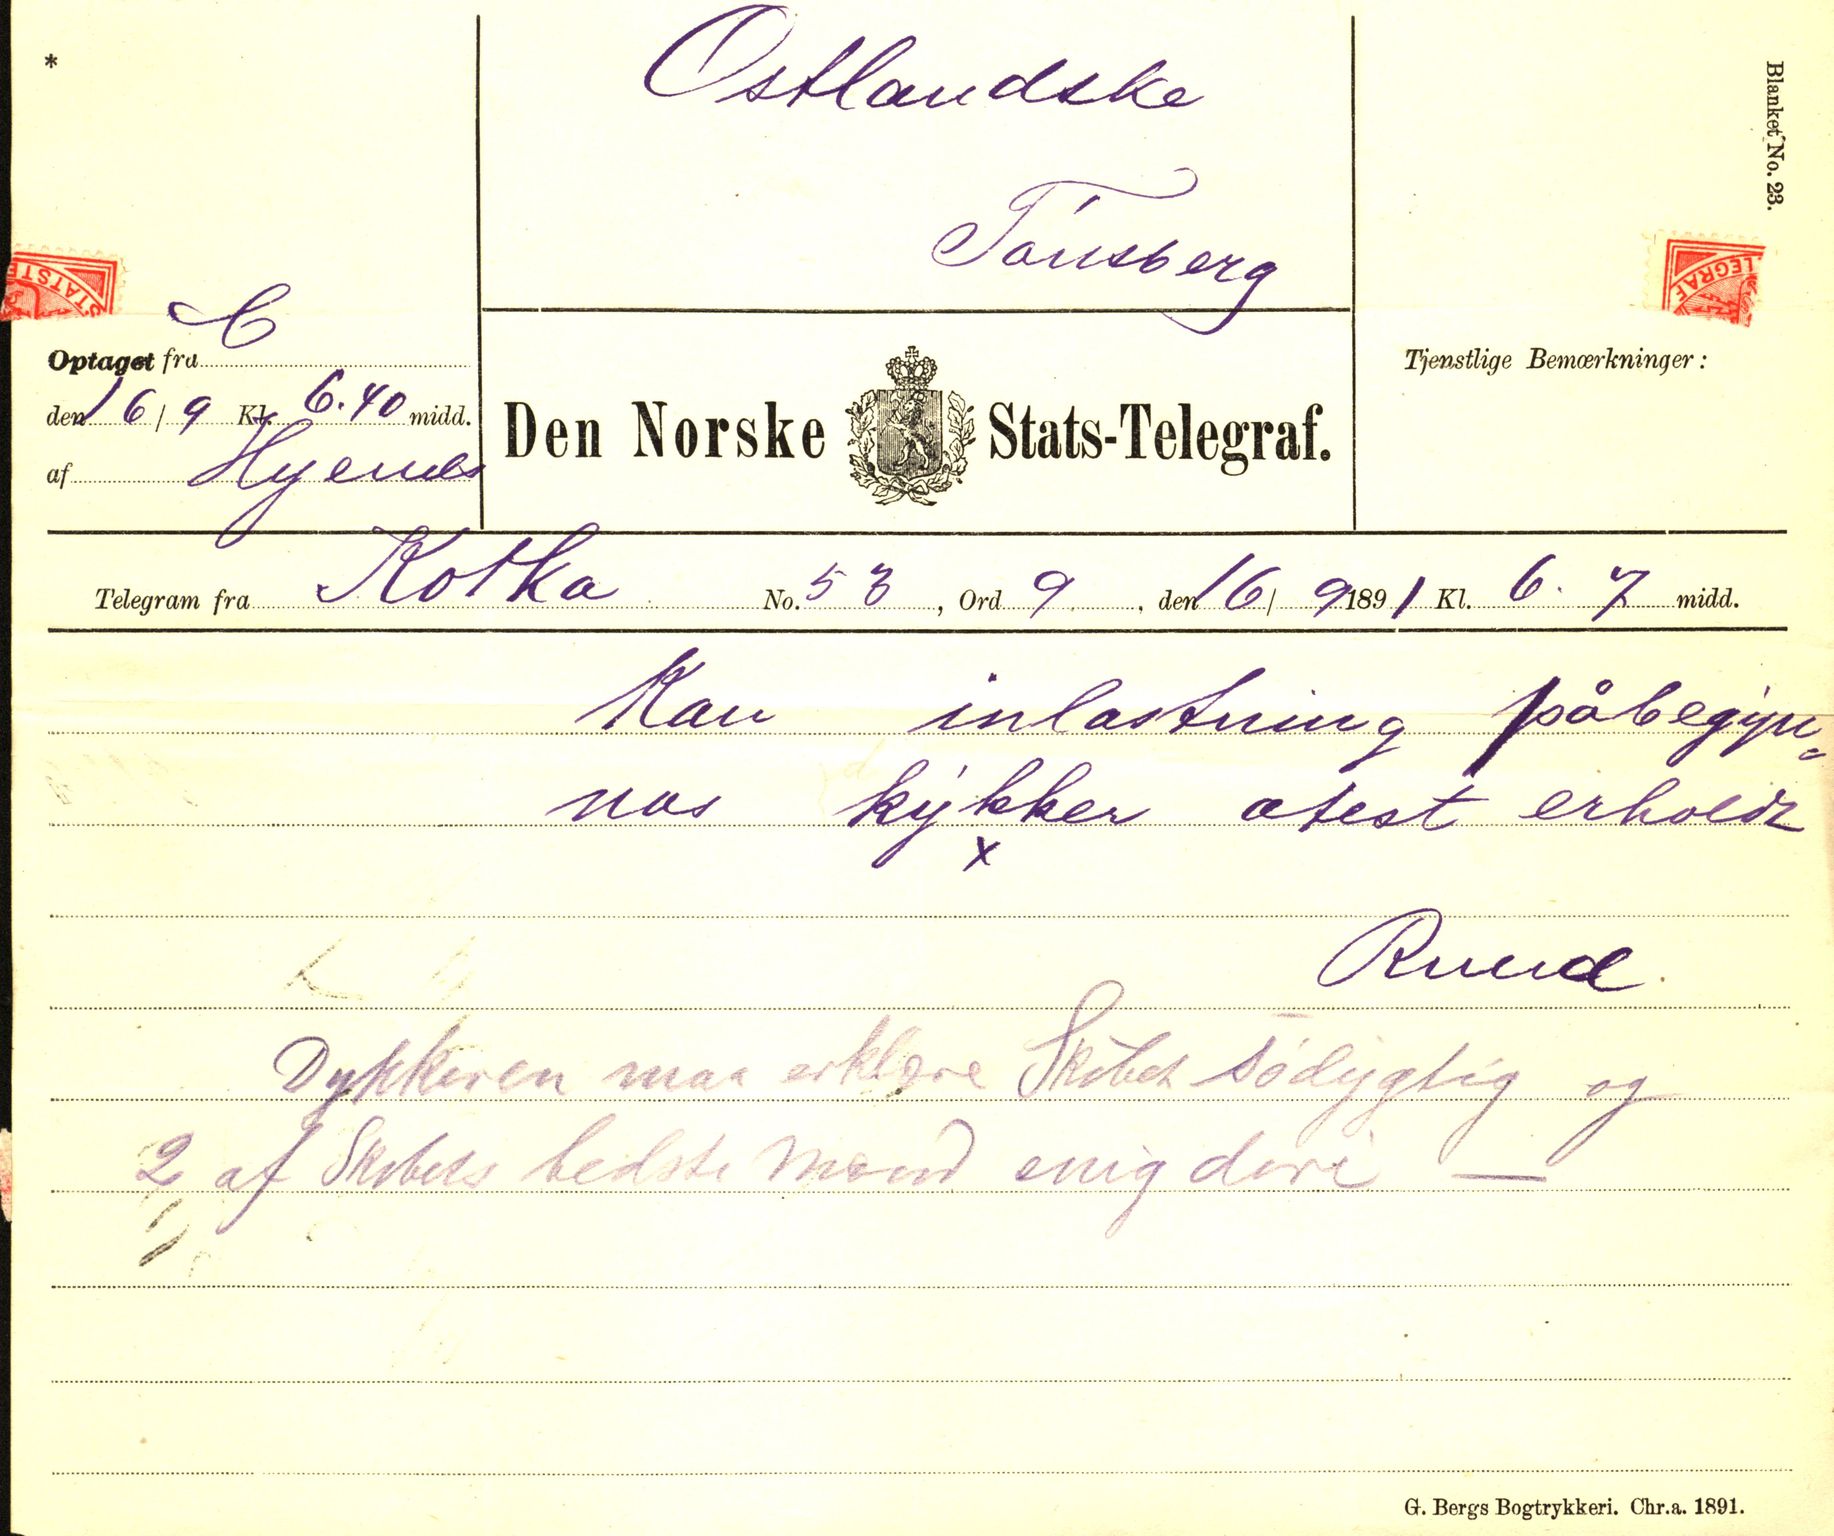 *
Ostlandske
Tönsberg
Blanket No. 23.
STATSTE
LEGRAF
Optaget fra C
den 16/9 Kl. 6.40 midd.
af Hyenes
Tjenstlige Bemærkninger:
Den Norske Stats-Telegraf.
Telegram fra Kotka No. 53, Ord 9, den 16/9 1891 Kl. 6.7 midd.
Kan inlastning påbegyn=
nas kýkker atest erholdt
x
Ruud.
Dykkeren maa erklære Skibet södygtig og
2 af Skibets bedste Mænd enig deri —
G. Bergs Bogtrykkeri. Chr.a. 1891.